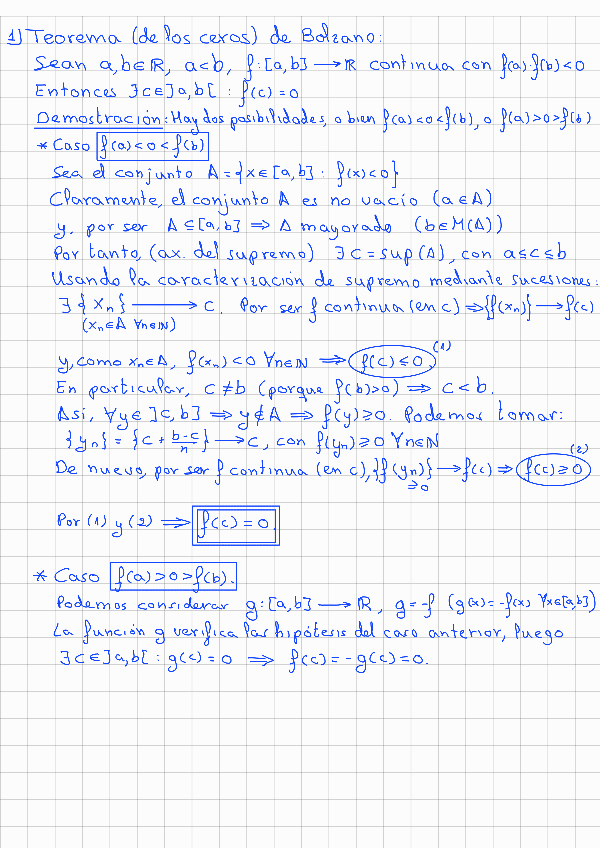 1) Teorema (de los ceros) de Bolzano:
Sean a,b∈ℝ, a<b, f:[a,b]⟶ℝ continua con f(a)·f(b)<0
Entonces ∃c∈]a,b[ : f(c)=0
Demostración: Hay dos posibilidades, o bien f(a)<0<f(b), o f(a)>0>f(b)
* Caso f(a)<0<f(b)
Sea el conjunto A={x∈[a,b] : f(x)<0}
Claramente, el conjunto A es no vacío (a∈A)
y, por ser A⊆[a,b] ⟹ A mayorado (b∈M(A))
Por tanto, (ax. del supremo) ∃c=sup(A), con a≤c≤b
Usando la caracterización de supremo mediante sucesiones:
∃{xₙ}⟶c. Por ser f continua (en c) ⟹{f(xₙ)}⟶f(c)
(xₙ∈A ∀n∈ℕ)
y, como xₙ∈A, f(xₙ)<0 ∀n∈ℕ ⟹ f(c)≤0 (1)
En particular, c≠b (porque f(b)>0) ⟹ c<b.
Así, ∀y∈]c,b] ⟹ y∉A ⟹ f(y)≥0. Podemos tomar:
{yₙ}={c+(b-c)/n}⟶c, con f(yₙ)≥0 ∀n∈ℕ
De nuevo, por ser f continua (en c), {f(yₙ)}⟶f(c) ⟹ f(c)≥0 (2)
≥0
Por (1) y (2) ⟹ f(c)=0
* Caso f(a)>0>f(b).
Podemos considerar g:[a,b]⟶ℝ, g=-f (g(x)=-f(x) ∀x∈[a,b])
La función g verifica las hipótesis del caso anterior, luego
∃c∈]a,b[ : g(c)=0 ⟹ f(c)=-g(c)=0.